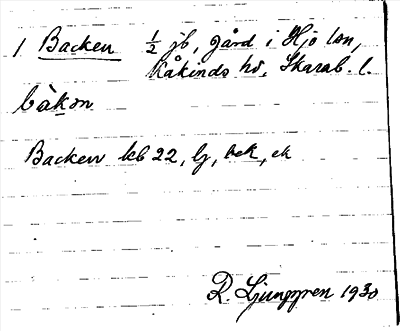 1 Backen ½ jb, gård i Hjo lsn,
Kåkinds hd. Skarab. l.
bàkən
Backen kb 22, lj, hek, ek
R. Ljunggren 1930